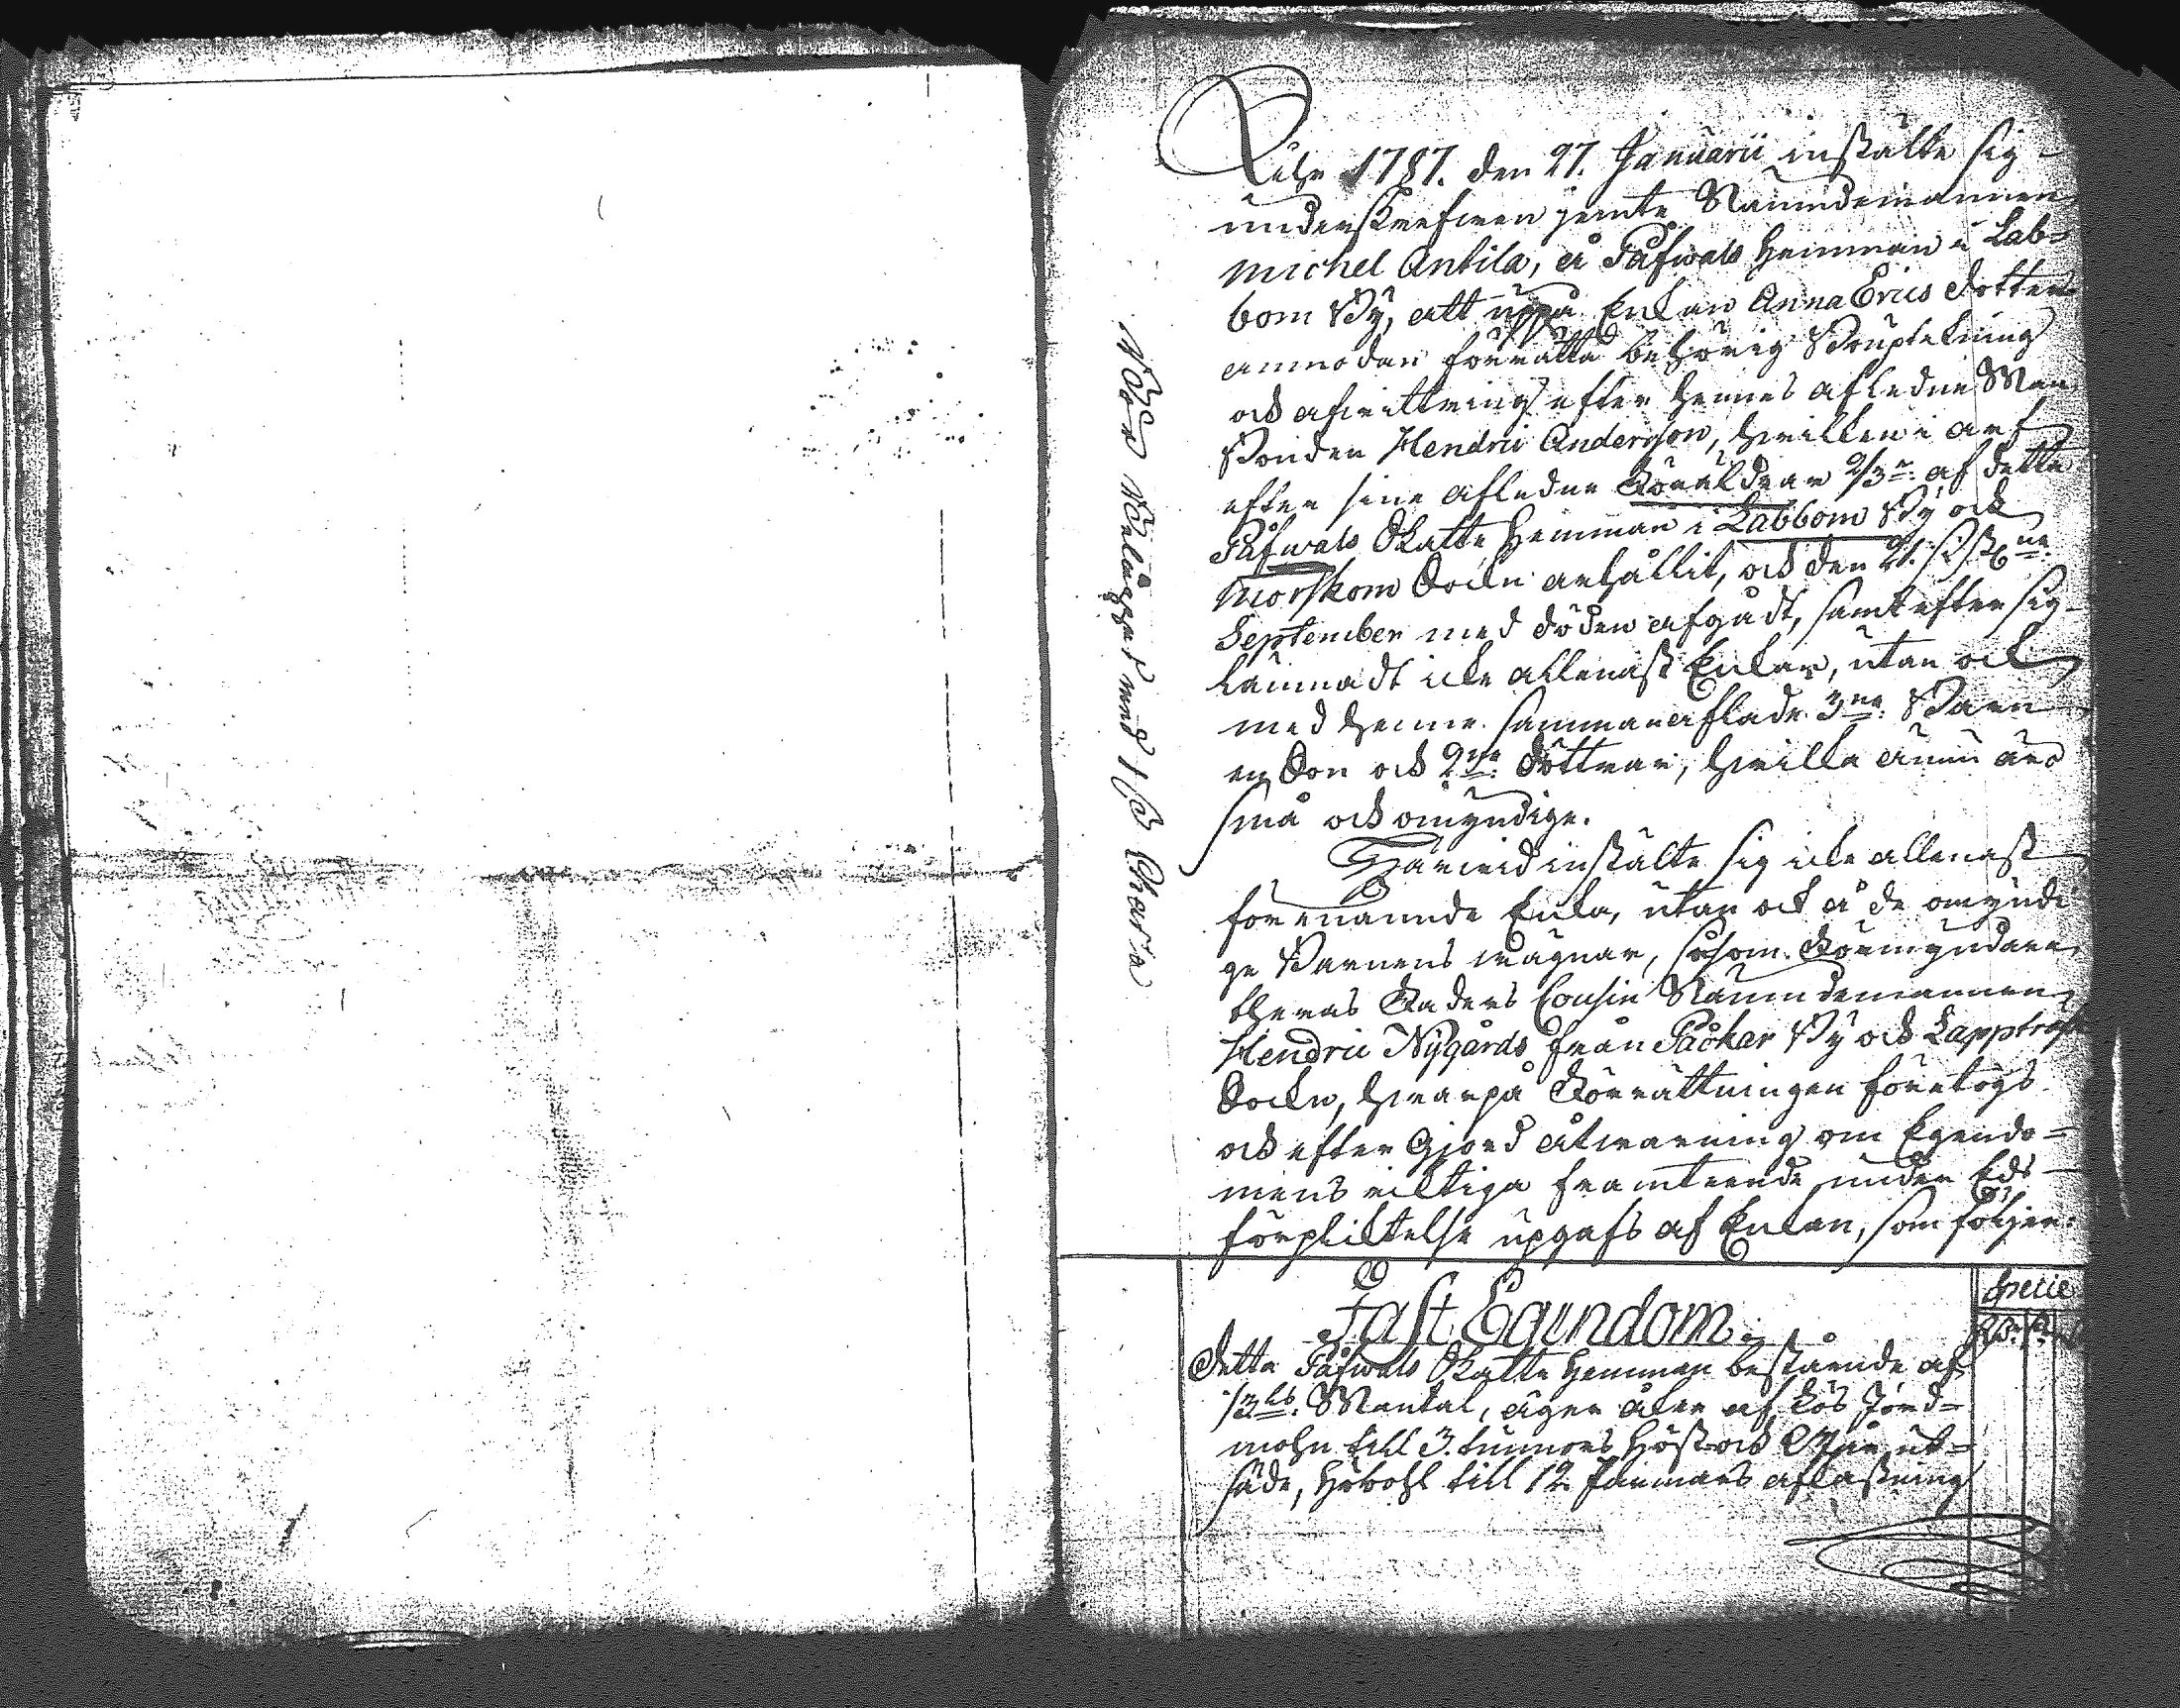 Åhr 1787. den 27. Januarii instälte sig
underskrefwen jemte Nämndemannen
Michel Antila, å Påfwals Hemman i Lab=
bom By, att uppå Enkan Anna Erics dotters
anmodan förrätta behörig Bouptekning
och afwittring efter hennes aflednе Man
Bonden Hendric Andersson, hwilken i arf
efter sine afledne Föräldrar 2/3 af detta
Påfwals Skatte Hemman i Labbom By och
Morskom Sockn erhållit, och den 21. sistl. ne
September med döden afgådt, samt efter sig
lämnadt icke allenast Enkan, utan ock
med henne sammanaflade 3ne Barn
en Son och 2ne Döttrar, hwilka ännu äro
små och omyndige.
Härwid instälte sig icke allenast
förenämnde Enka, utan ock å de omyndi
ge Barnens wägnar, såsom Förmyndare
theras Faders Cousin Nämndemannen
Hendric Nygårds från Påckar By och Lappträsk
Sockn, hwarpå Förrättningen företogs
och efter gjord åtwarning om Egendo=
mens riktiga framteende under Eds
förpliktelse upgafs af Enkan, som följer:
Wår Belägget med 1 sk Charta
Fast Egendom.
Specie
Detta Påfwals Skatte Hemman bestående af
1/3 dls Mantal, äger åker af lös Jord=
mohn till 3. tunnors Höst och Wår ut=
säde, Höbohl till 12 Parmars aflastning